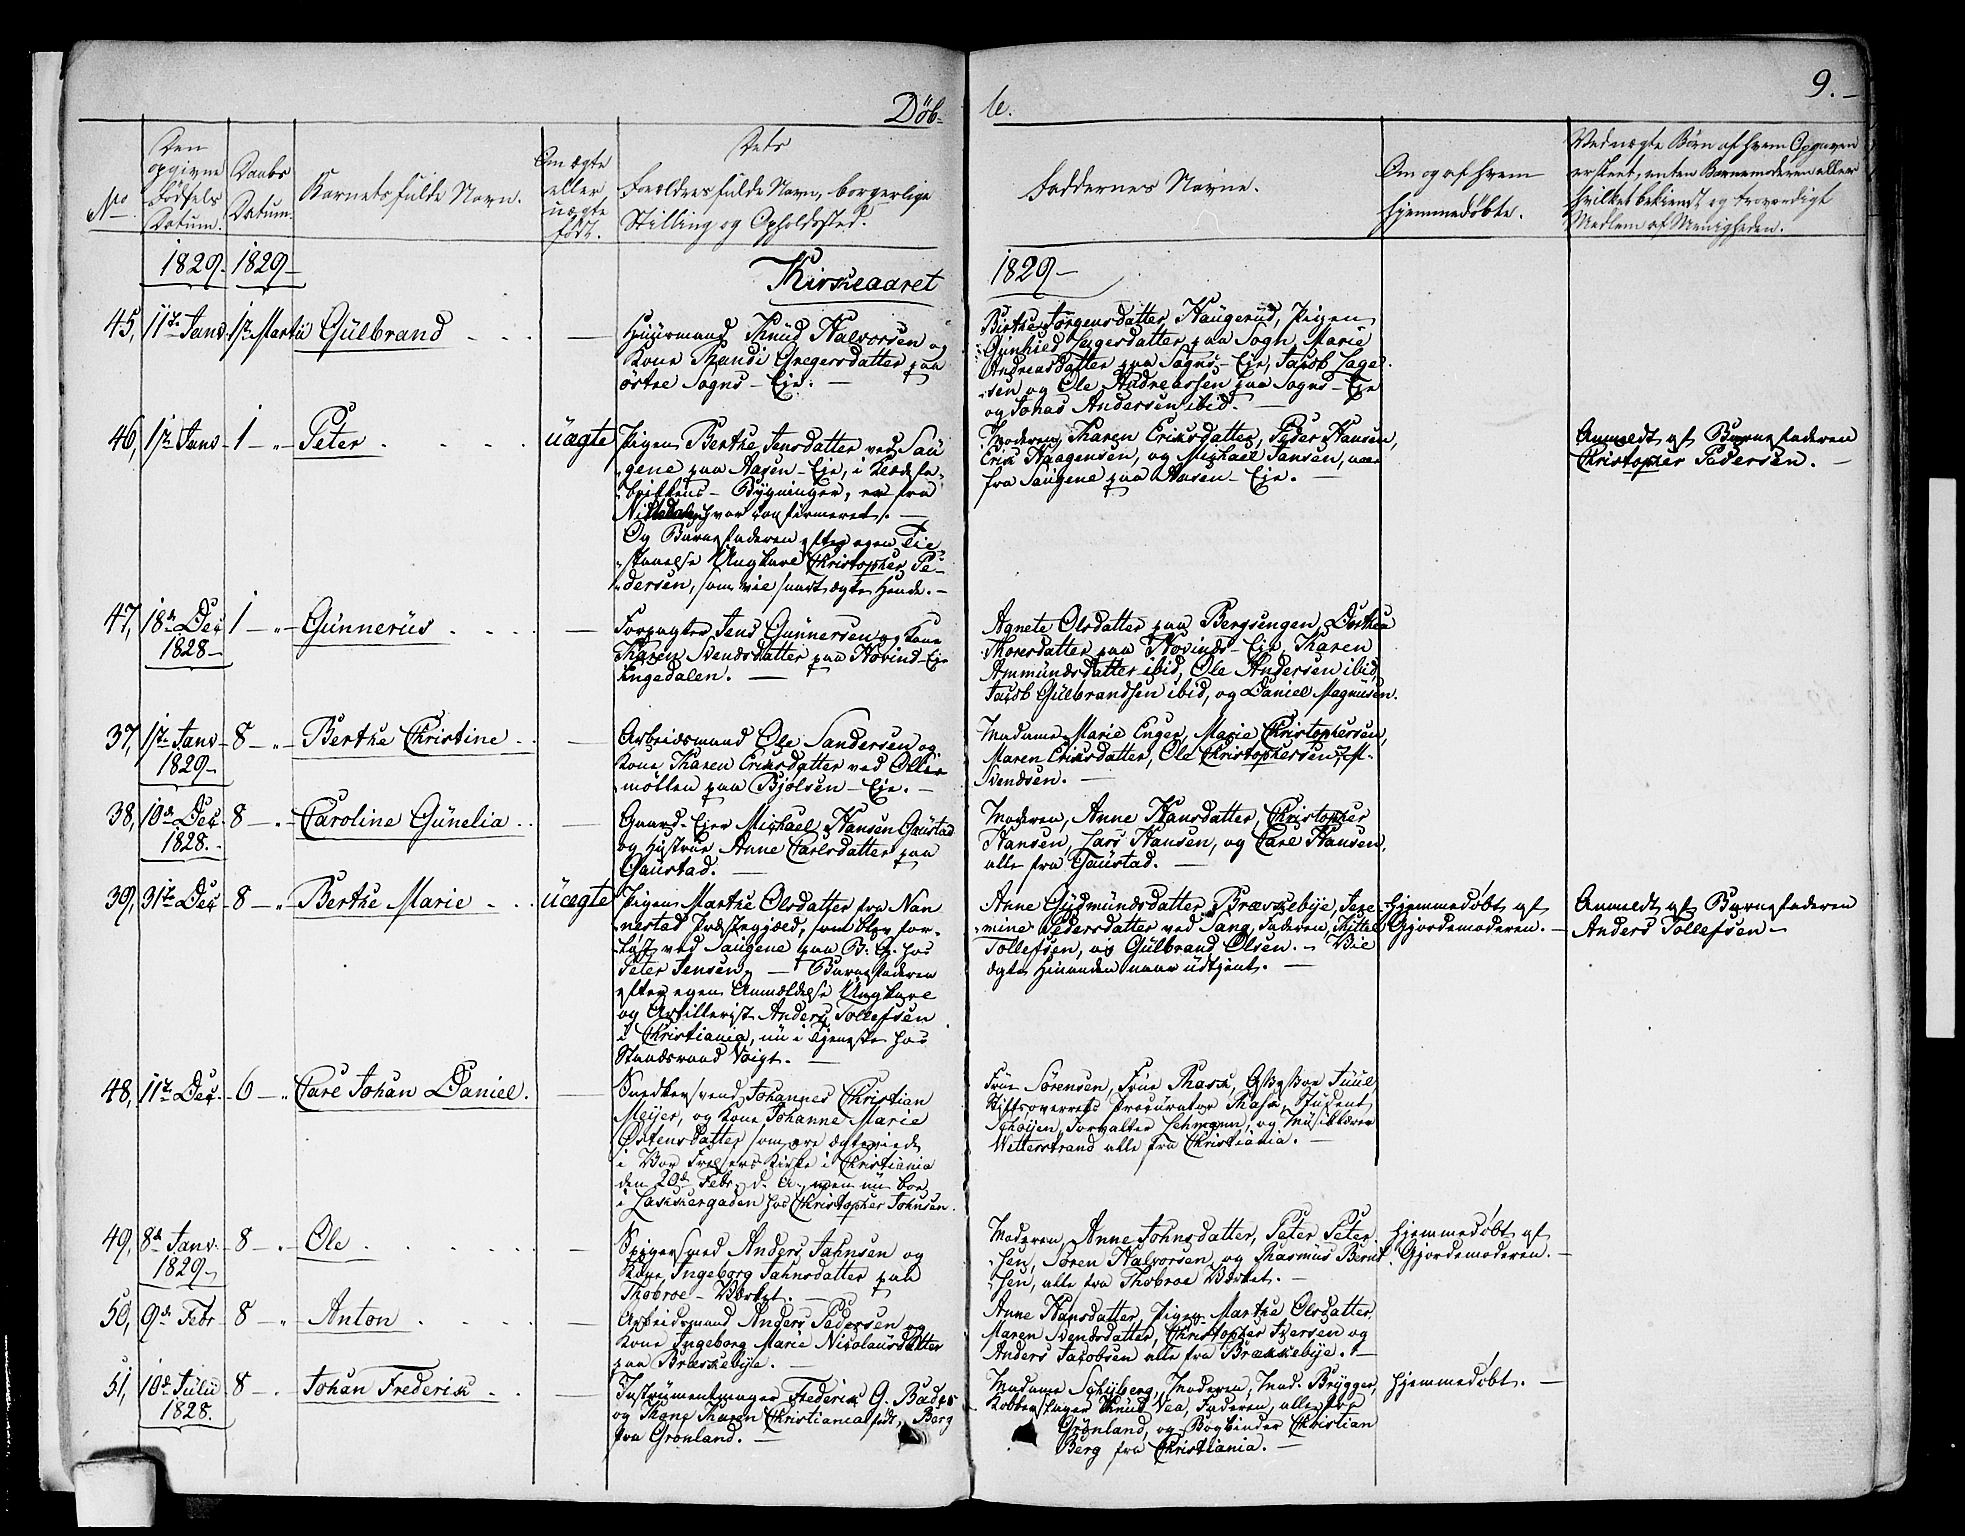 Döb-
te.
9.
No.
Den
opgivne
Födsels
Datum.
Daabs
Datum.
Barnets fulde Navn.
Om ægte
eller
uægte
født.
Dets
Forældres fulde Navn, borgerlige
Stilling og Opholdssted.
Faddernes Navne.
Om og af hvem
hjemmedøbte.
Ved uægte Børn af hvem Opgaven
er skeet, enten Barnemoderen eller
hvilket bekiendt og troværdigt
Medlem af Menigheden.
1829. 1829
Kirkeaaret
1829
45, 11te Janv. 1te Martii Gülbrand
Huusmand Knud Halvorsen og
Kone Randi Gregersdatter paa
östre Sogns-Eje.
Birthe Jörgensdatter Haugerud, Pigen
Gunhild Lagesdatter paa Sogn, Marie
Andreasdatter paa Sogns-Eje, Jacob Lage-
sen og Ole Andreassen paa Sogns-Eje
og Johas Andersen ibid.
46, 1te Janv 1 Peter uægte
Pigen Berthe Jensdatter ved Sau-
gene paa Aasen-Eje, i Klædefa-
brikkens-Bygninger, er fra
Nittedalen, hvor confirmeret.
Og Barnefaderen efter egen Tie-
staaelse Ungkarl Christopher Pe-
dersen, som vil snart ægte Hende.
Moderen, Karen Eriksdatter, Peder Hansen,
Erik Haagensen, og Michael Jansen, alle
fra Saugene paa Aasen-Eje.
Anmeldt af Barnefaderen
Christopher Pedersen.
47, 18de Dec 1 Günnerüs
1828
Forpagter Jens Gunnersen og Kone
Karen Svendsdatter paa Hovind-Eje
Engedalen.
Agnete Olsdatter paa Bergsengen, Dorthea
Thoresdatter paa Hovinds-Eje, Karen
Ammündsdatter ibid, Ole Andersen ibid,
Jacob Gülbrandsen ibid, og Daniel Magnüsen.
37, 1te Janv 8 Berthe Christine
1829
Arbeidsmand Ole Sandersen og
Kone Karen Eriksdatter ved Ollie-
möllen paa Bjölsen-Eje.
Madame Marie Enger, Marie Christophersen,
Maren Eriksdatter, Ole Christophersen,
Svendsen.
38, 10de Dec 8 Caroline Günelia
1828.
Gaard-Ejer Michael Hansen Gaustad
og Hustrue Anne Carlsdatter paa
Gaustad.
Moderen, Anne Hansdatter, Christopher
Hansen, Lars Hansen, og Carl Hansen,
alle fra Gaustad.
39, 31te Dec 8 Berthe Marie uægte
Pigen Marthe Olsdatter fra Nan-
nestad Præstegjæld, som blev for-
löst ved Saugene paa B. E. hos
Peter Jensen, Barnefaderen
efter egen Anmeldelse Ungkarl
og Artillerist Anders Tollefsen
i Christiania, nu i Tjeneste hos
Stadsraad Voigt.
Anne Gudmündsdatter Brækkebye, Jage-
mine Pedersdatter ved Sang, Faderen, Kittel
Tollefsen, og Gülbrand Olsen. Vil
ægte Hinanden naar udtjent.
Hjemmedöbt af
Gjordemoderen.
Anmeldt af Barnefaderen
Anders Tollefsen
48, 11te Dec 6 Carl Johan Daniel.
Snedkersvend Johannes Christian
Meijer, og Kone Johanne Marie
Östensdatter som ere ægteviede
i Vor Frelsers Kirke i Christiania
den 20de Febr. d. A. men nu boe
i Lakkergaden hos Christopher Johnsen.
Frue Sörensen, Frue Rasch, Juul,
Stiftsoverrets Procurator Rasch, Student
Schöjen, Forvalter Lehmann, og Musiklærer
Wetterstrand alle fra Christiania.
49, 8de Janv. 8 Ole
1829
Spigersmed Anders Jahnsen og
Kone Ingeborg Jahnsdatter paa
Thobroe-Værket.
Moderen, Anne Johnsdatter, Peter Peter-
sen, Sören Halvorsen, og Rasmus Bernt-
sen, alle fra Thobroe Værket.
Hjemmedöbt af
Gjordemoderen.
50, 9de Febr 8 Anton
Arbeidsmand Anders Pedersen og
Kone Ingeborg Marie Nicolausdatter
paa Brækkebye.
Anne Hansdatter, Pigen Marthe Olsdatter,
Maren Svendsdatter, Christopher Iversen og
Anders Jacobsen alle fra Brækkebye.
51, 10de Julii 8 Johan Frederik
1828.
Instrumentmager Frederik G. Bader
og Kone Karen Christiania född, Berg
fra Grønland.
Madame Schyberg, Moderen, Mad. Brygger,
Kobberslager Knud Vea, Faderen, alle fra
Grønland, og Bogbinder Christian
Berg fra Christiania.
Hjemmedöbt.